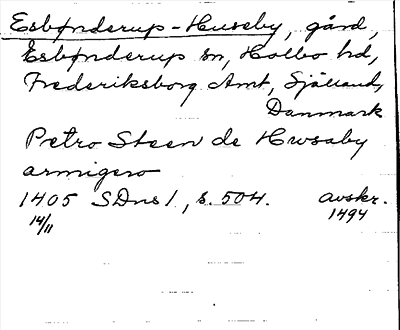 Esbønderup-Huseby, gård,
Esbønderup sn, Holbo hd,
Frederiksborg Amt, Själland,
Danmark
Petro Steen de Hwsaby
armigero
1405 SDns 1, s. 504. avskr.
14/11 1494